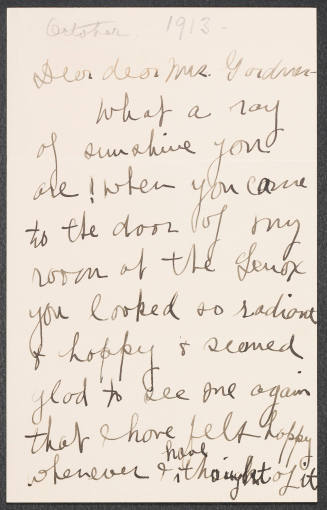 October. 1913.
Dear dear Mrs. Gardner
What a ray
of sunshine you
are! When you came
to the door of my
room at the Lenox
you looked so radiant
& happy & seemed
glad to see me again
that I have felt happy
have
whenever I thought of it